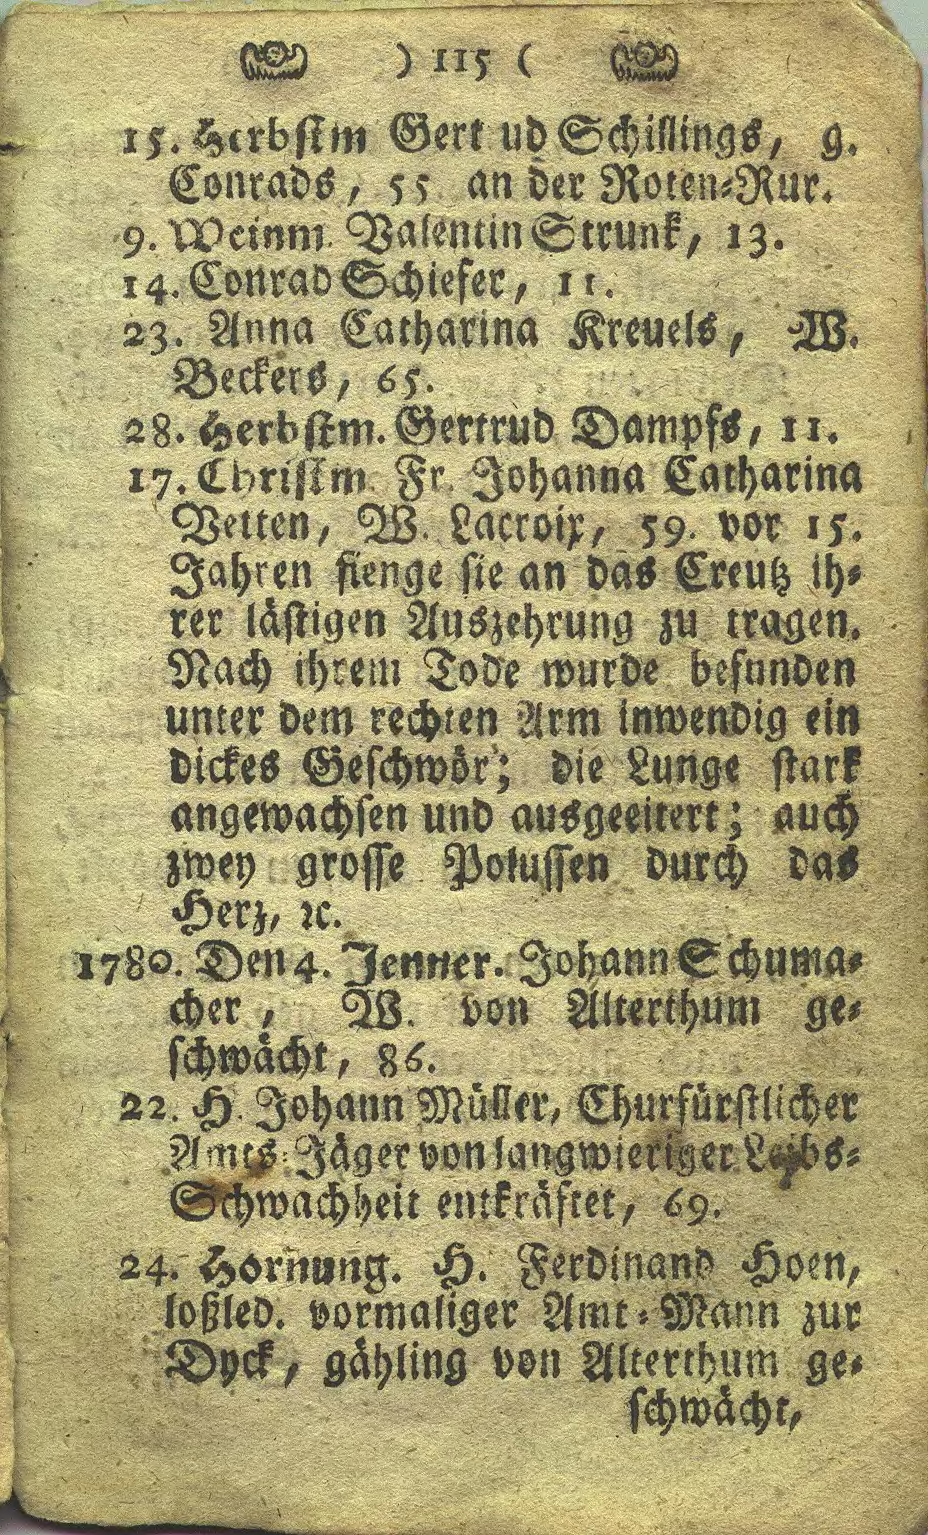 ) 115 (
15. Herbstm Gert ud Schillings, g.
Conrads, 55 an der Roten-Rur.
9. Weinm. Valentin Strunk, 13.
14. Conrad Schiefer, 11.
23. Anna Catharina Kreuels, W.
Beckers, 65.
28. Herbstm. Gertrud Dampfs, 11.
17. Christm Fr. Johanna Catharina
Vetten, W. Lacroix, 59. vor 15.
Jahren fienge sie an das Creutz ih-
rer lästigen Auszehrung zu tragen.
Nach ihrem Tode wurde befunden
unter dem rechten Arm inwendig ein
dickes Geschwör; die Lunge stark
angewachsen und ausgeeitert; auch
zwey grosse Polussen durch das
Herz, ꝛc.
1780. Den 4. Jenner. Johann Schuma-
cher, W. von Alterthum ge-
schwächt, 86.
22. H. Johann Müller, Churfürstlicher
Amts-Jäger von langwieriger Leibs-
Schwachheit entkräftet, 69.
24. Hornung. H. Ferdinand Hoen,
loßled. vormaliger Amt-Mann zur
Dyck, gähling von Alterthum ge-
schwächt,